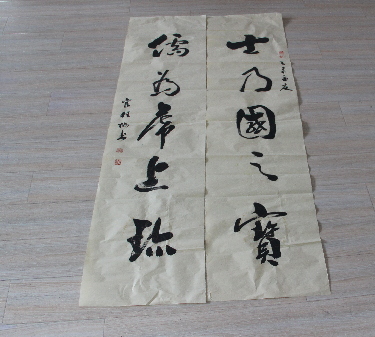 士乃國之寶
儒為席上珍